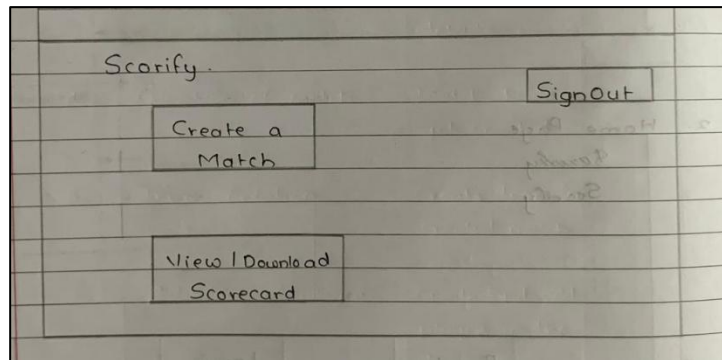 Scorify.
Sign Out
Create a
Match
View / Download
Scorecard